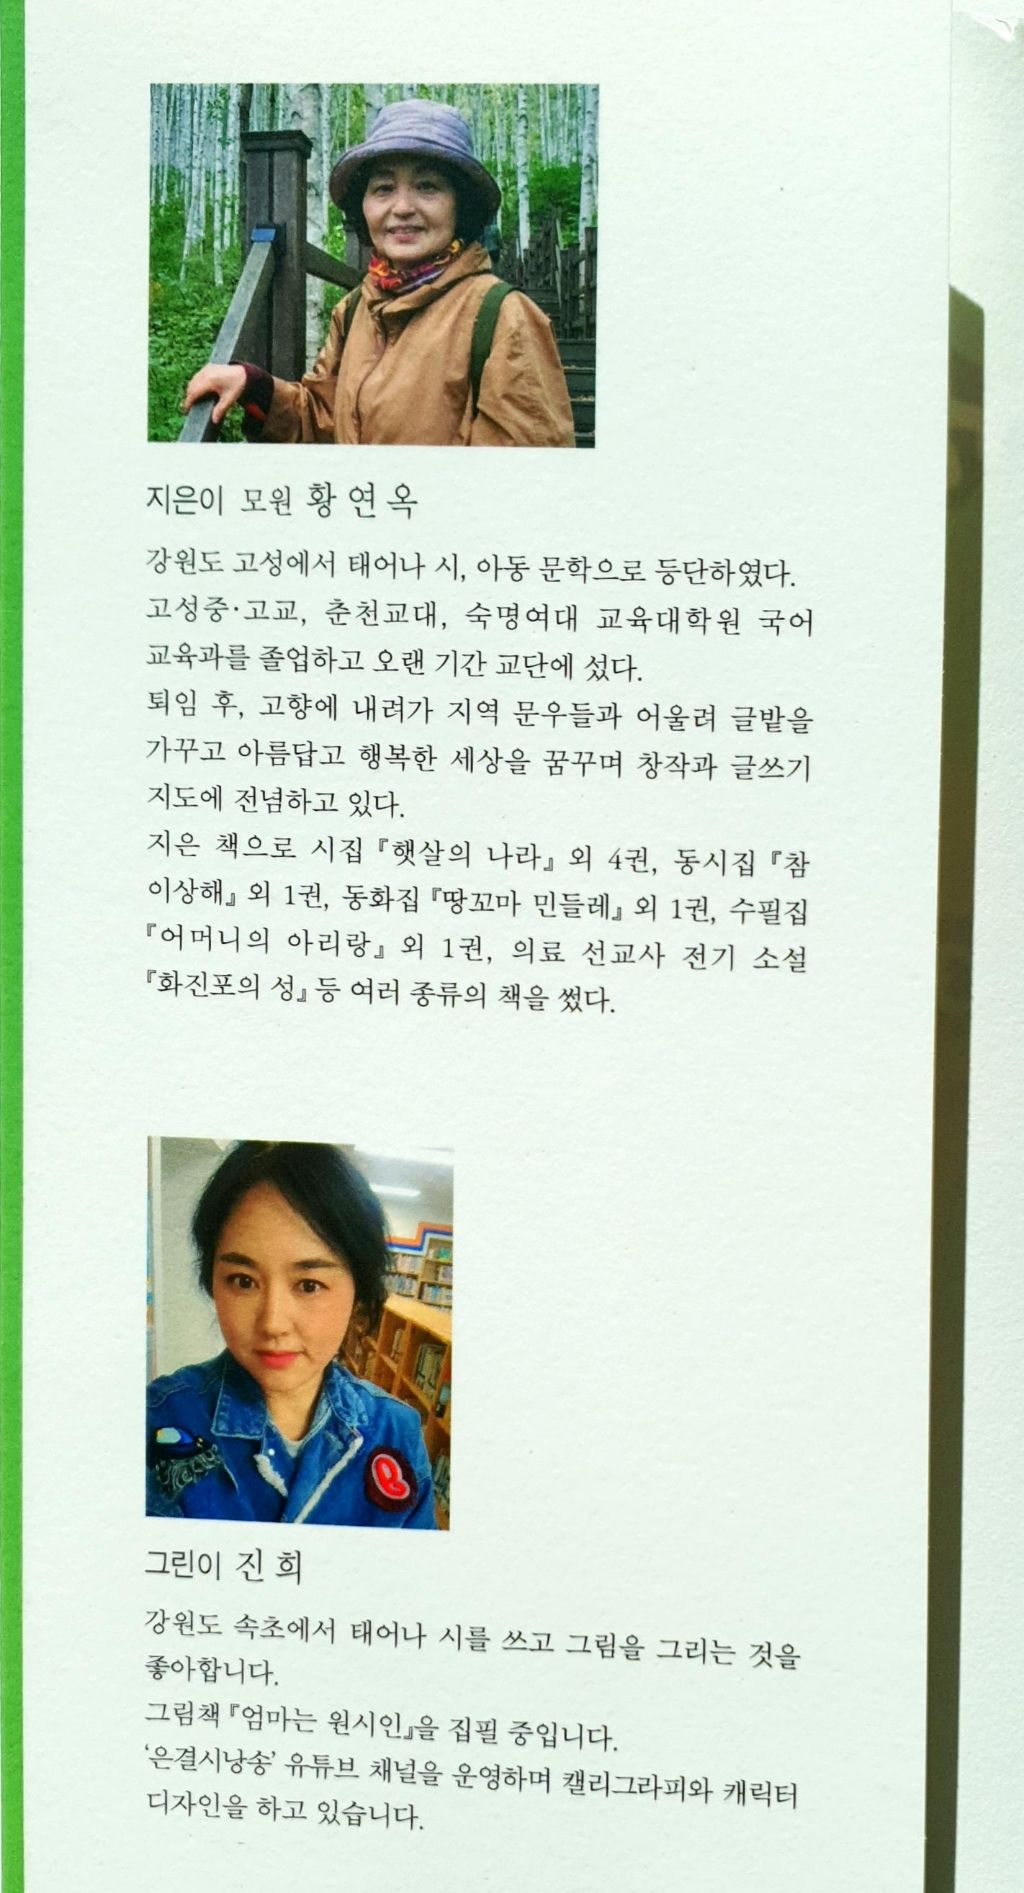 지은이 모원 황 연 옥
강원도 고성에서 태어나 시, 아동 문학으로 등단하였다.
고성중·고교, 춘천교대, 숙명여대 교육대학원 국어
교육과를 졸업하고 오랜 기간 교단에 섰다.
퇴임 후, 고향에 내려가 지역 문우들과 어울려 글밭을
가꾸고 아름답고 행복한 세상을 꿈꾸며 창작과 글쓰기
지도에 전념하고 있다.
지은 책으로 시집 『햇살의 나라』 외 4권, 동시집 『참
이상해』 외 1권, 동화집 『땅꼬마 민들레』 외 1권, 수필집
『어머니의 아리랑』 외 1권, 의료 선교사 전기 소설
『화진포의 성』 등 여러 종류의 책을 썼다.
그린이 진 희
강원도 속초에서 태어나 시를 쓰고 그림을 그리는 것을
좋아합니다.
그림책 『엄마는 원시인』을 집필 중입니다.
‘은결시낭송’ 유튜브 채널을 운영하며 캘리그라피와 캐릭터
디자인을 하고 있습니다.